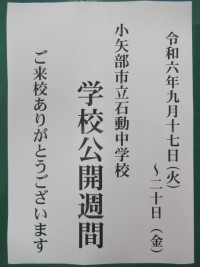 令和六年九月十七日（火）
～二十日（金）
小矢部市立石動中学校
学校公開週間
ご来校ありがとうございます